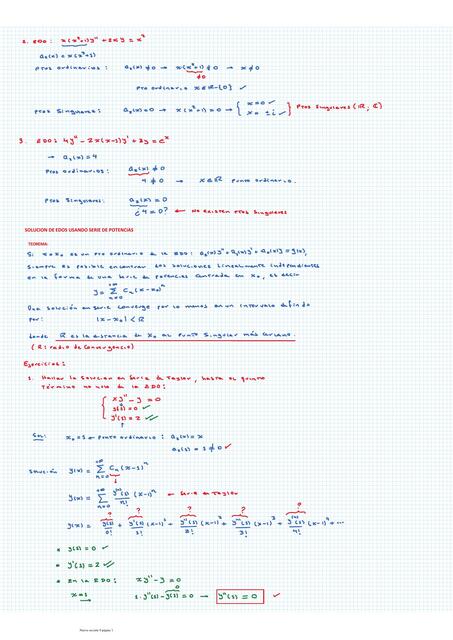 2. EDO: x(x²+1)y'' + 2xy = x²
a₂(x) = x(x²+1)
Ptos ordinarios: a₂(x) ≠ 0 → x(x²+1) ≠ 0 → x ≠ 0
≠0
Pto ordinario x∈ℝ-{0} ✓
Ptos Singulares: a₂(x) = 0 → x(x²+1) = 0 → { x = 0 ✓ x = ±i ✓ } Ptos Singulares (ℝ, ℂ)
3. EDO: 4y'' - 2x(x-1)y' + 3y = eˣ
→ a₂(x) = 4
Ptos ordinarios: a₂(x) ≠ 0
4 ≠ 0 → x∈ℝ Punto ordinario.
Ptos Singulares: a₂(x) = 0
¿4 = 0? ← No existen Ptos Singulares
SOLUCION DE EDOS USANDO SERIE DE POTENCIAS
TEOREMA:
Si x=x₀ es un Pto ordinario de la EDO: a₂(x)y''+a₁(x)y'+a₀(x)y = g(x),
siempre es posible encontrar dos soluciones linealmente independientes
en la forma de una serie de potencias centrada en x₀, es decir
y = Σ_{n=0}^{+∞} Cₙ(x-x₀)ⁿ
Una solución en serie converge por lo menos en un intervalo definido
por: |x-x₀| < R
donde R es la distancia de x₀ al Punto Singular más cercano.
(R: radio de convergencia)
Ejercicios:
1. Hallar la solución en serie de Taylor, hasta el quinto
término no nulo de la EDO:
{ xy'' - y = 0
y(1) = 0 ✓
y'(1) = 2 ✓
Sol: x₀ = 1 ← Punto ordinario: a₂(x) = x
a₂(1) = 1 ≠ 0 ✓
Solución y(x) = Σ_{n=0}^{+∞} Cₙ(x-1)ⁿ
y(x) = Σ_{n=0}^{+∞} y⁽ⁿ⁾(1)/n! (x-1)ⁿ ← Serie de Taylor
? ? ? ? ?
y(x) = y(1)/0! + y'(1)/1! (x-1)¹ + y''(1)/2! (x-1)² + y'''(1)/3! (x-1)³ + y⁽⁴⁾(1)/4! (x-1)⁴ + ...
• y(1) = 0 ✓
• y'(1) = 2 ✓
• En la EDO: xy'' - y = 0
x=1 → 1·y''(1) - y(1) = 0 → y''(1) = 0 ✓
0